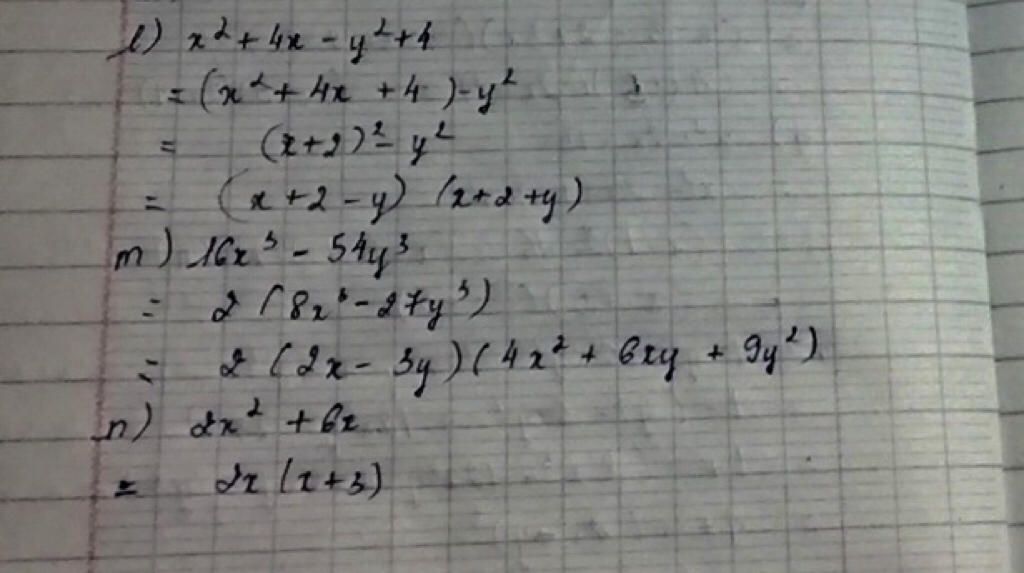 l) x² + 4x - y² + 4
= (x² + 4x + 4) - y²
= (x+2)² - y²
= (x+2-y) (x+2+y)
m) 16x³ - 54y³
= 2 (8x³ - 27y³)
= 2 (2x - 3y) (4x² + 6xy + 9y²)
n) 2x² + 6x
= 2x (x+3)